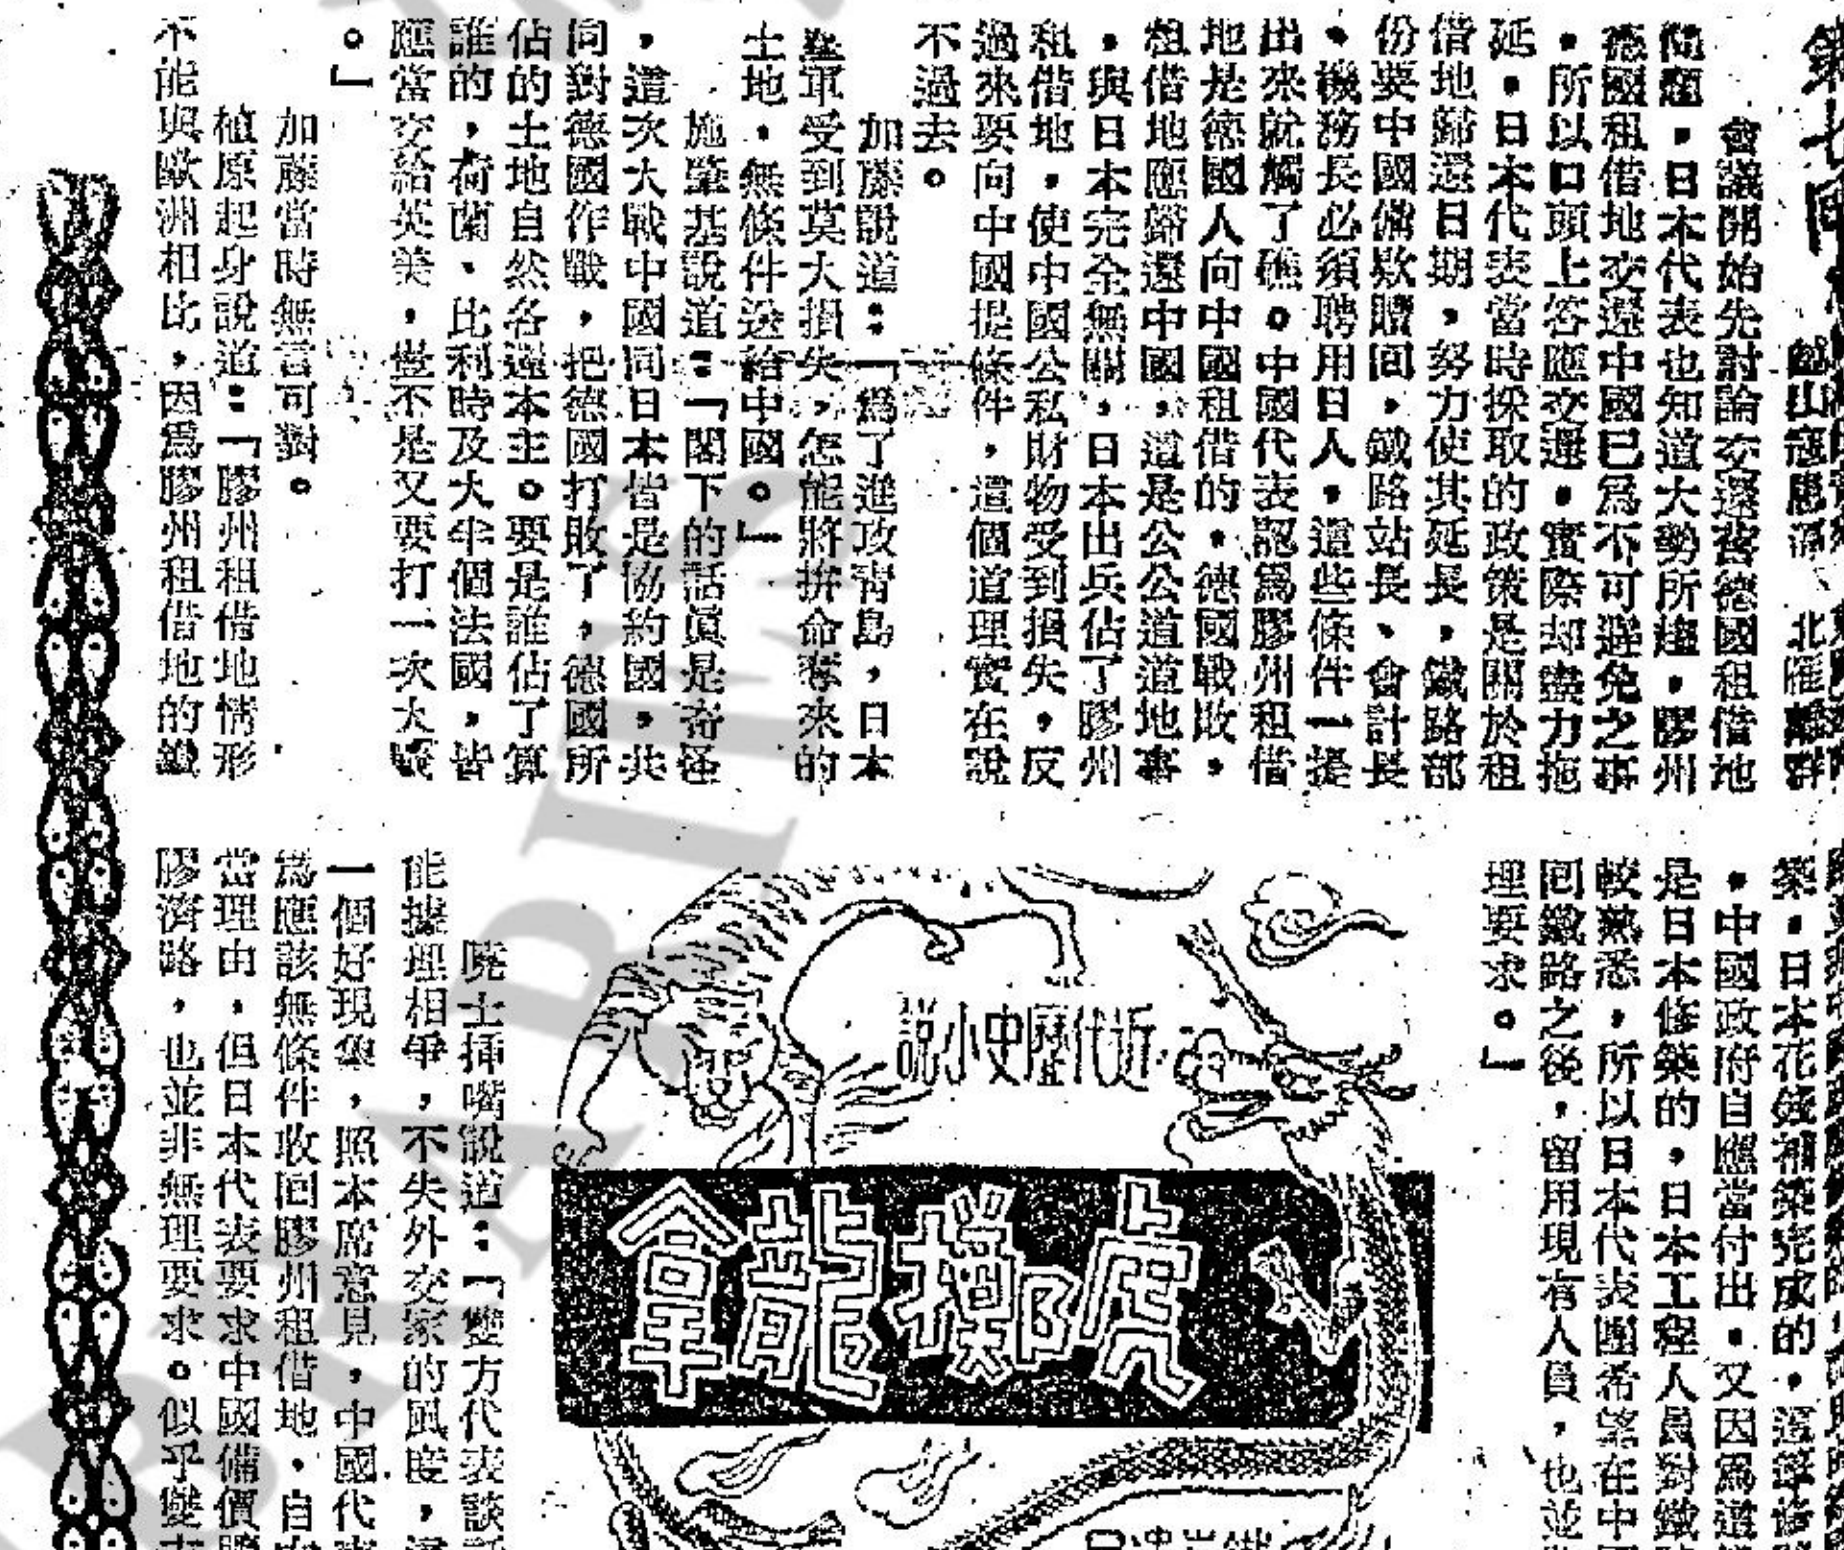 會議開始先討論交還舊德國租借地
問題，日本代表也知道大勢所趨，膠州
德國租借地交還中國已爲不可避免之事
，所以口頭上答應交還，實際却盡力拖
延，日本代表當時採取的政策是關於租
借地歸還日期，努力使其延長，鐵路部
份要中國備款贖回，鐵路站長、會計長
、機務長必須聘用日人，這些條件一提
出來就觸了礁。中國代表認爲膠州租借
地是德國人向中國租借的，德國戰敗，
租借地應歸還中國，這是公公道道地事
，與日本完全無關，日本出兵佔了膠州
租借地，使中國公私財物受到損失，反
過來要向中國提條件，這個道理實在說
不過去。
加藤說道：「爲了進攻青島，日本
軍受到莫大損失，怎能將拚命奪來的
土地，無條件送給中國。」
施肇基說道：「閣下的話眞是奇怪
，這次大戰中國同日本皆是協約國，共
同對德國作戰，把德國打敗了，德國所
佔的土地自然各還本主。要是誰佔了算
誰的，荷蘭、比利時及大半個法國，皆
應當交給英美，豈不是又要打一次大戰
。」
加藤當時無言可對。
植原起身說道：「膠州租借地情形
不能與歐洲相比，因爲膠州租借地的鐵
北雁離群
築，日本花錢補築完成的，
，中國政府自應當付出，又因爲這
是日本修築的，日本工程人員對鐵
較熟悉，所以日本代表團希望在中
回鐵路之後，留用現有人員，也並
理要求。」
近代歷史小說
虎擲龍拿
陸士揷嘴說道：「雙方代表談
能據理相爭，不失外交家的風度，
一個好現象，照本席意見，中國代
爲應該無條件收回膠州租借地，自
當理由，但日本代表要求中國備價
膠濟路，也並非無理要求。似乎雙